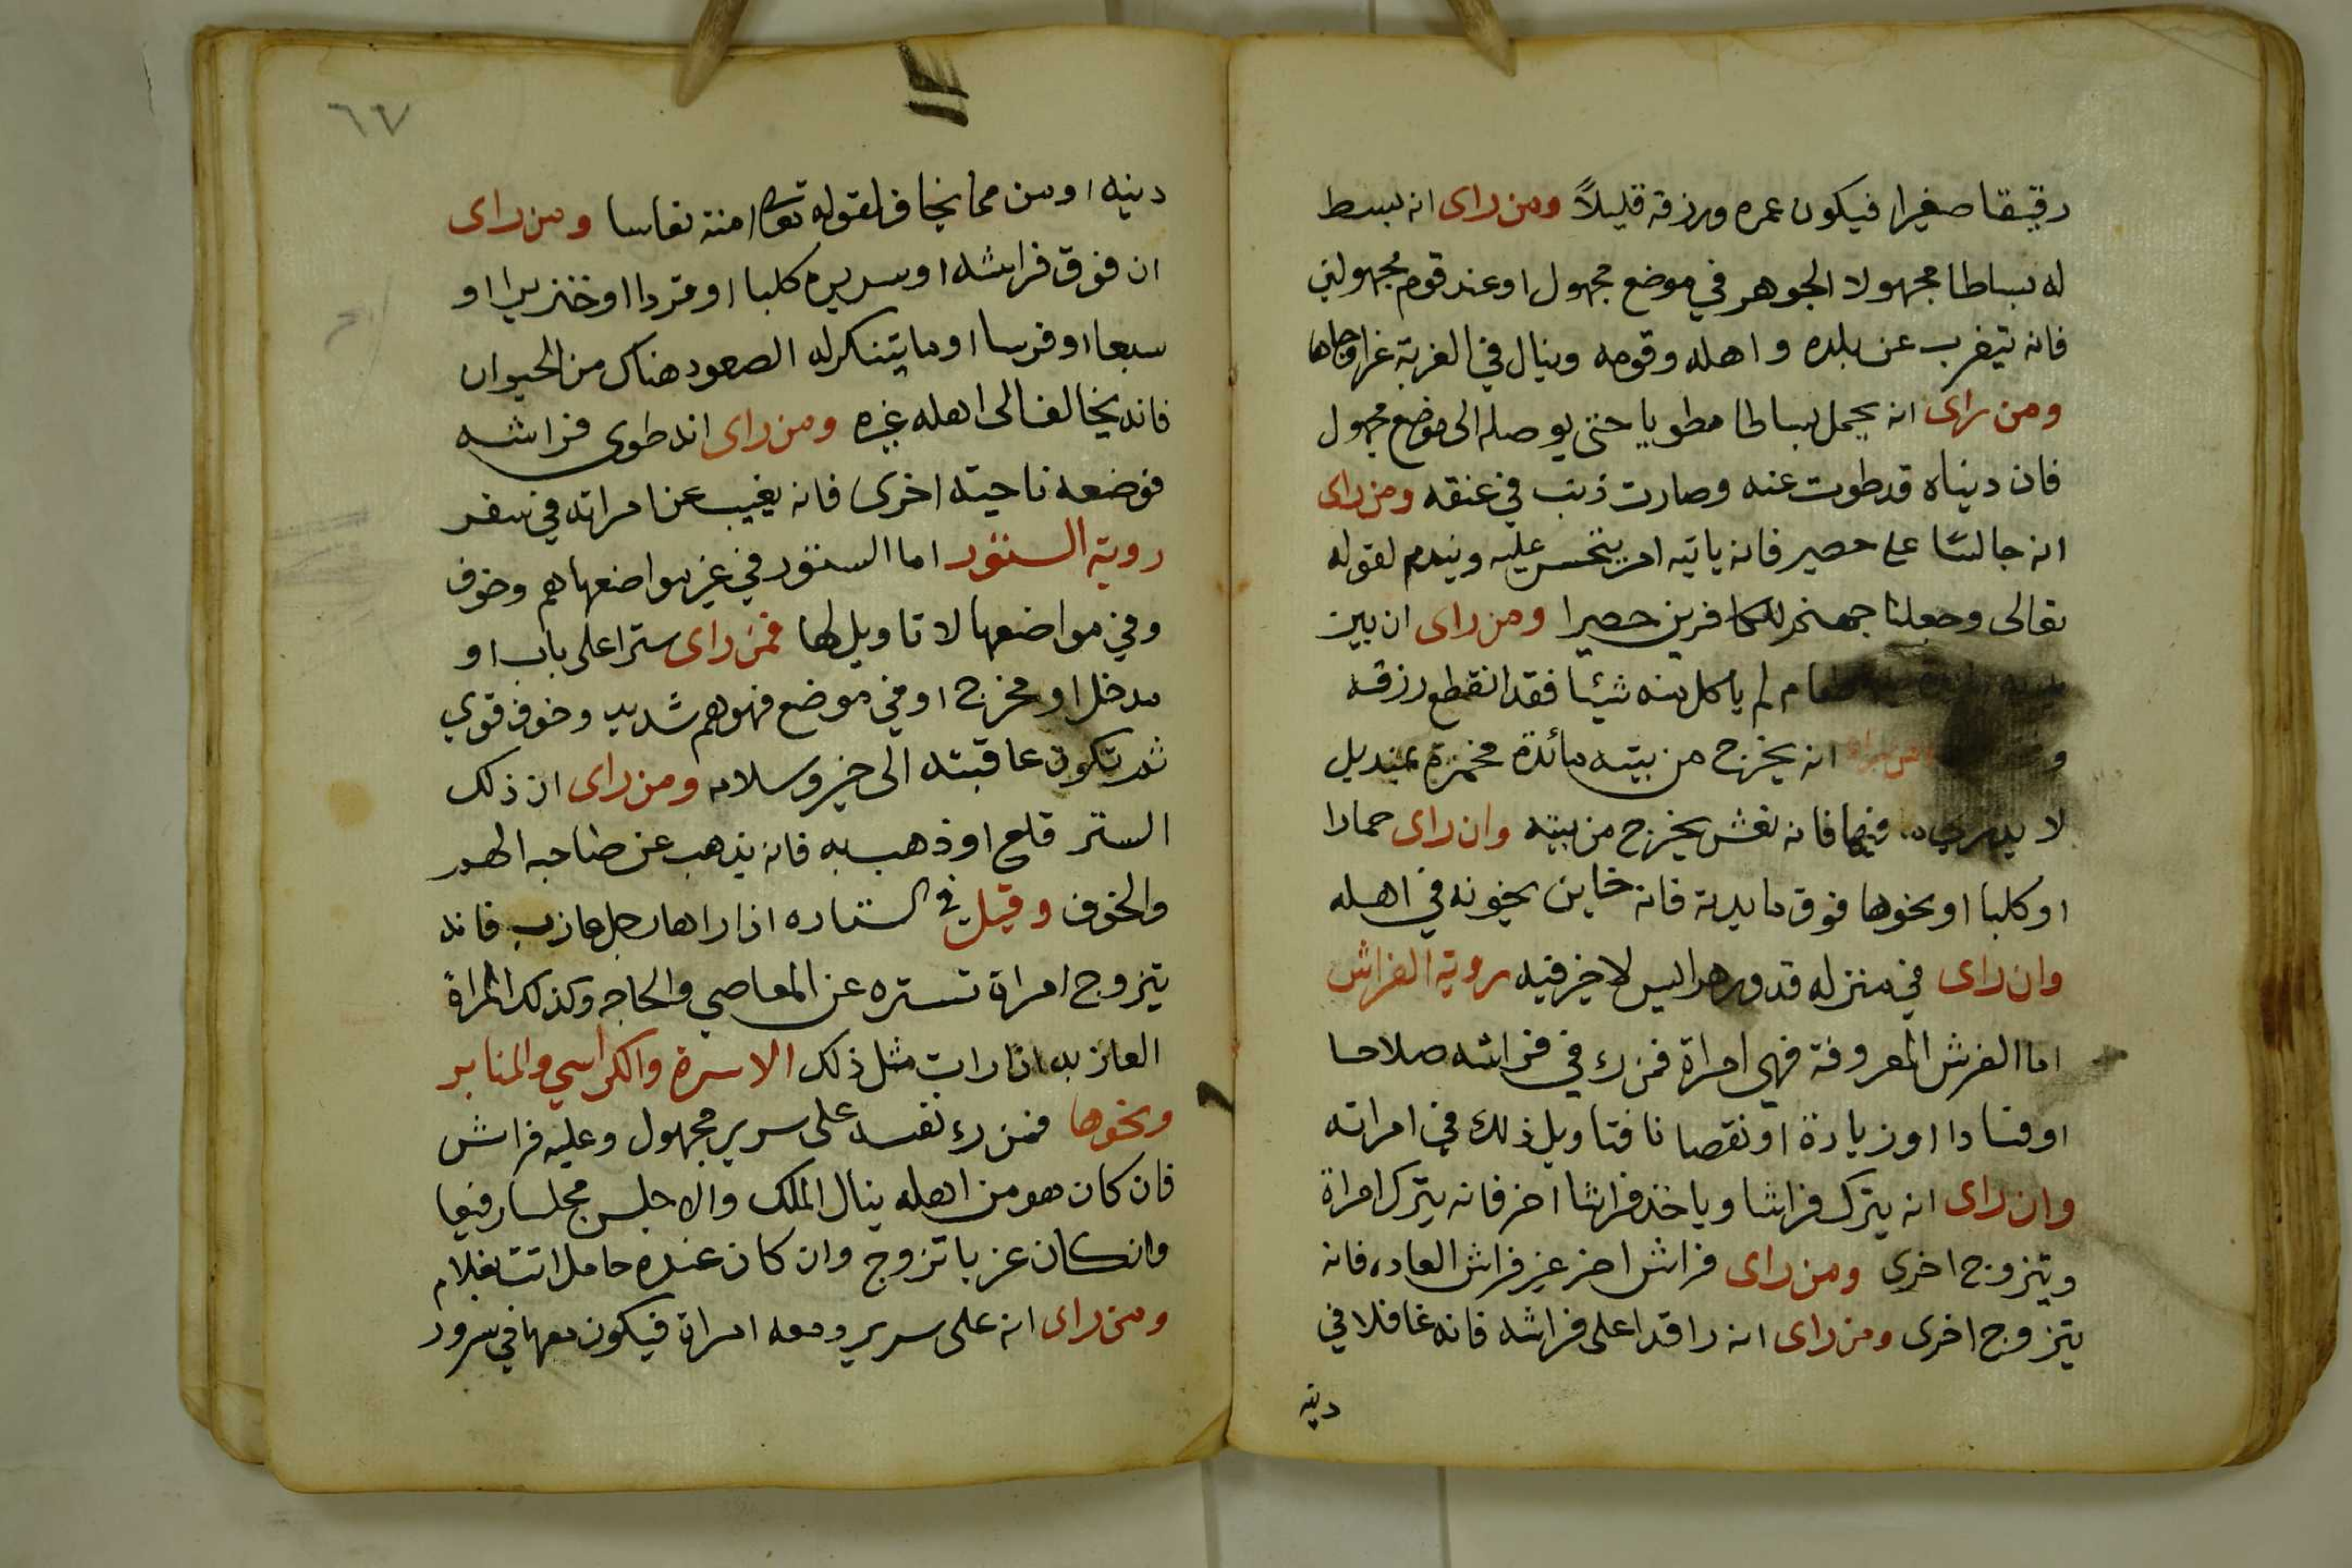 رقيقا صغيرا فيكون عمره ورزقه قليلاً ومن راى انه بسط
له بساطا مجهولا الجوهر في موضع مجهول او عند قوم مجهولين
فانه تيغرب عن بلده و اهله وقومه وينال في الغربة عزا وجاها
ومن راى انه يحمل بساطا مطويا حتى يوصله الى موضع مجهول
فان دنياه قد طويت عنه وصارت ذنب في عنقه ومن راى
انه جالسًا على حصير فانه ياتيه امر يتحسر عليه ويندم لقوله
تعالى وجعلنا جهنم للكافرين حصيرا ومن راى ان بين
طعام لم ياكل منه شيئا فقد انقطع رزقه
انه يخرج من بيته مائدة مخمرة بمنديل
لا يدري ما فيها فانه نعش يخرج من بيته وان راى حمارا
او كلبا او نحوها فوق مايدته فانه خاين يخونه في اهله
وان راى في منزله قدور هرايس لا خير فيه روية الفراش
اما الفرش المعروفة فهي امراة فمن رء في فراشه صلاحا
او فسادا او زيادة او نقصانا فتاويل ذلك في امراته
وان راى انه يترك فراشا وياخذ فراشا اخر فانه يترك امراة
ويتزوج اخرى ومن راى فراش اخر غير فراش العاده فانه
يتزوج اخرى ومن راى انه راقدا على فراشه فانه غافلا في
دينه
٦٧
دينه او من مما يخاف لقوله تعالى امنة نعاسا ومن راى
ان فوق فراشه او سريره كلبا او قردا او خنزيرا او
سبعا او فرسا او ما يتنكر له الصعود هناك من الحيوان
فانه يخالف الى اهله غيره ومن راى انه طوى فراشه
فوضعه ناحيته اخرى فانه يغيب عن امراته في سفر
روية الستور اما الستور في غير مواضعها هم وخوف
وفي مواضعها لا تاويل لها فمن راى سترا على باب او
مدخل او مخرج او في موضع فهو هم شديد وخوف قوي
ثم تكون عاقبته الى خير وسلامه ومن راى ان ذلك
الستر قلع او ذهب به فانه يذهب عن صاحبه الهم
والخوف وقيل في الستاره اذا راها رجل عازب فانه
يتزوج امراة تستره عن المعاصي والحاجه وكذلك المراة
العازبه اذا رات مثل ذلك الاسرة والكراسي والمنابر
ونحوها فمن رء نفسه على سرير مجهول وعليه فراش
فان كان هو من اهله ينال الملك والا جلس مجلسا رفيعا
وان كان عزبا تزوج وان كان عنده حامل اتت بغلام
ومن راى انه على سرير ومعه امراة فيكون معها في سرور